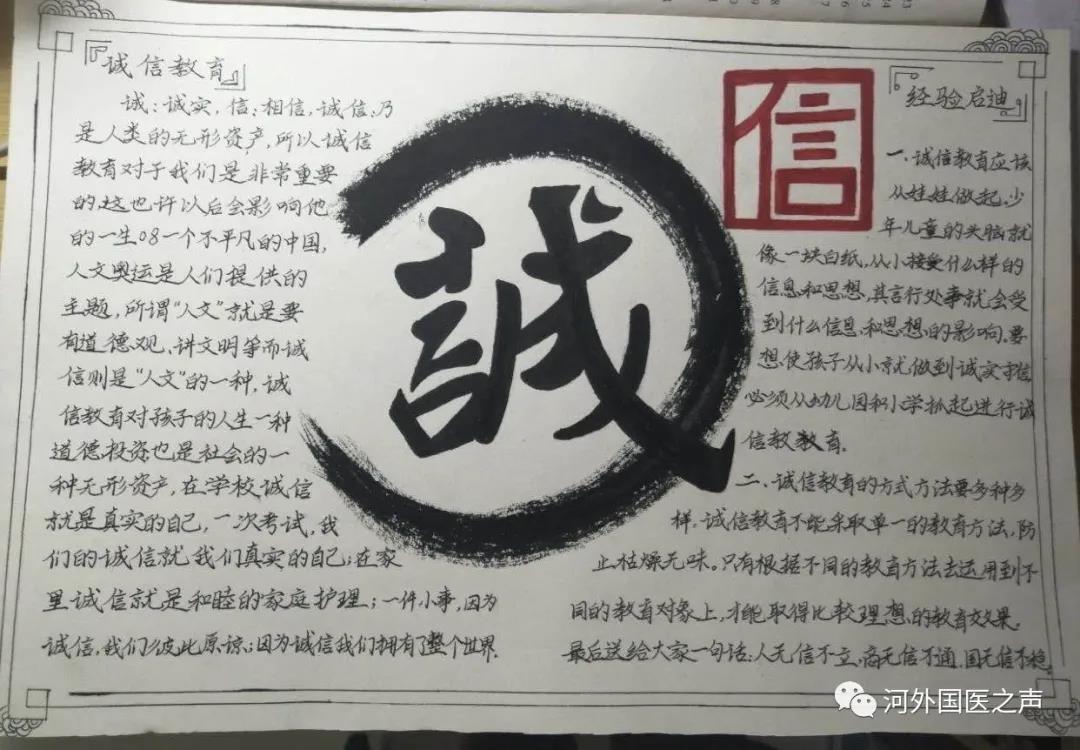 『诚信教育』
诚:诚实,信:相信,诚信.乃
是人类的无形资产,所以诚信
教育对于我们是非常重要
的.这也许以后会影响他
的一生08一个不平凡的中国,
人文奥运是人们提供的
主题,所谓"人文"就是要
有道德观、讲文明等而诚
信则是"人文"的一种,诚
信教育对孩子的人生一种
道德投资也是社会的一
种无形资产,在学校诚信
就是真实的自己,一次考试,我
们的诚信就我们真实的自己;在家
里诚信就是和睦的家庭护理;一件小事,因为
诚信,我们彼此原谅;因为诚信我们拥有了整个世界.
誠
信
『经验启迪』
一、诚信教育应该
从娃娃做起.少
年儿童的头脑就
像一块白纸,从小接受什么样的
信息和思想,其言行处事就会受
到什么信息和思想的影响.要
想使孩子从小就做到诚实守信
必须从幼儿园和小学抓起进行诚
信教教育.
二、诚信教育的方式方法要多种多
样,诚信教育不能采取单一的教育方法,防
止枯燥无味。只有根据不同的教育方法去运用到不
同的教育对象上,才能取得比较理想的教育效果.
最后送给大家一句话:人无信不立,商无信不通,国无信不稳
河外国医之声